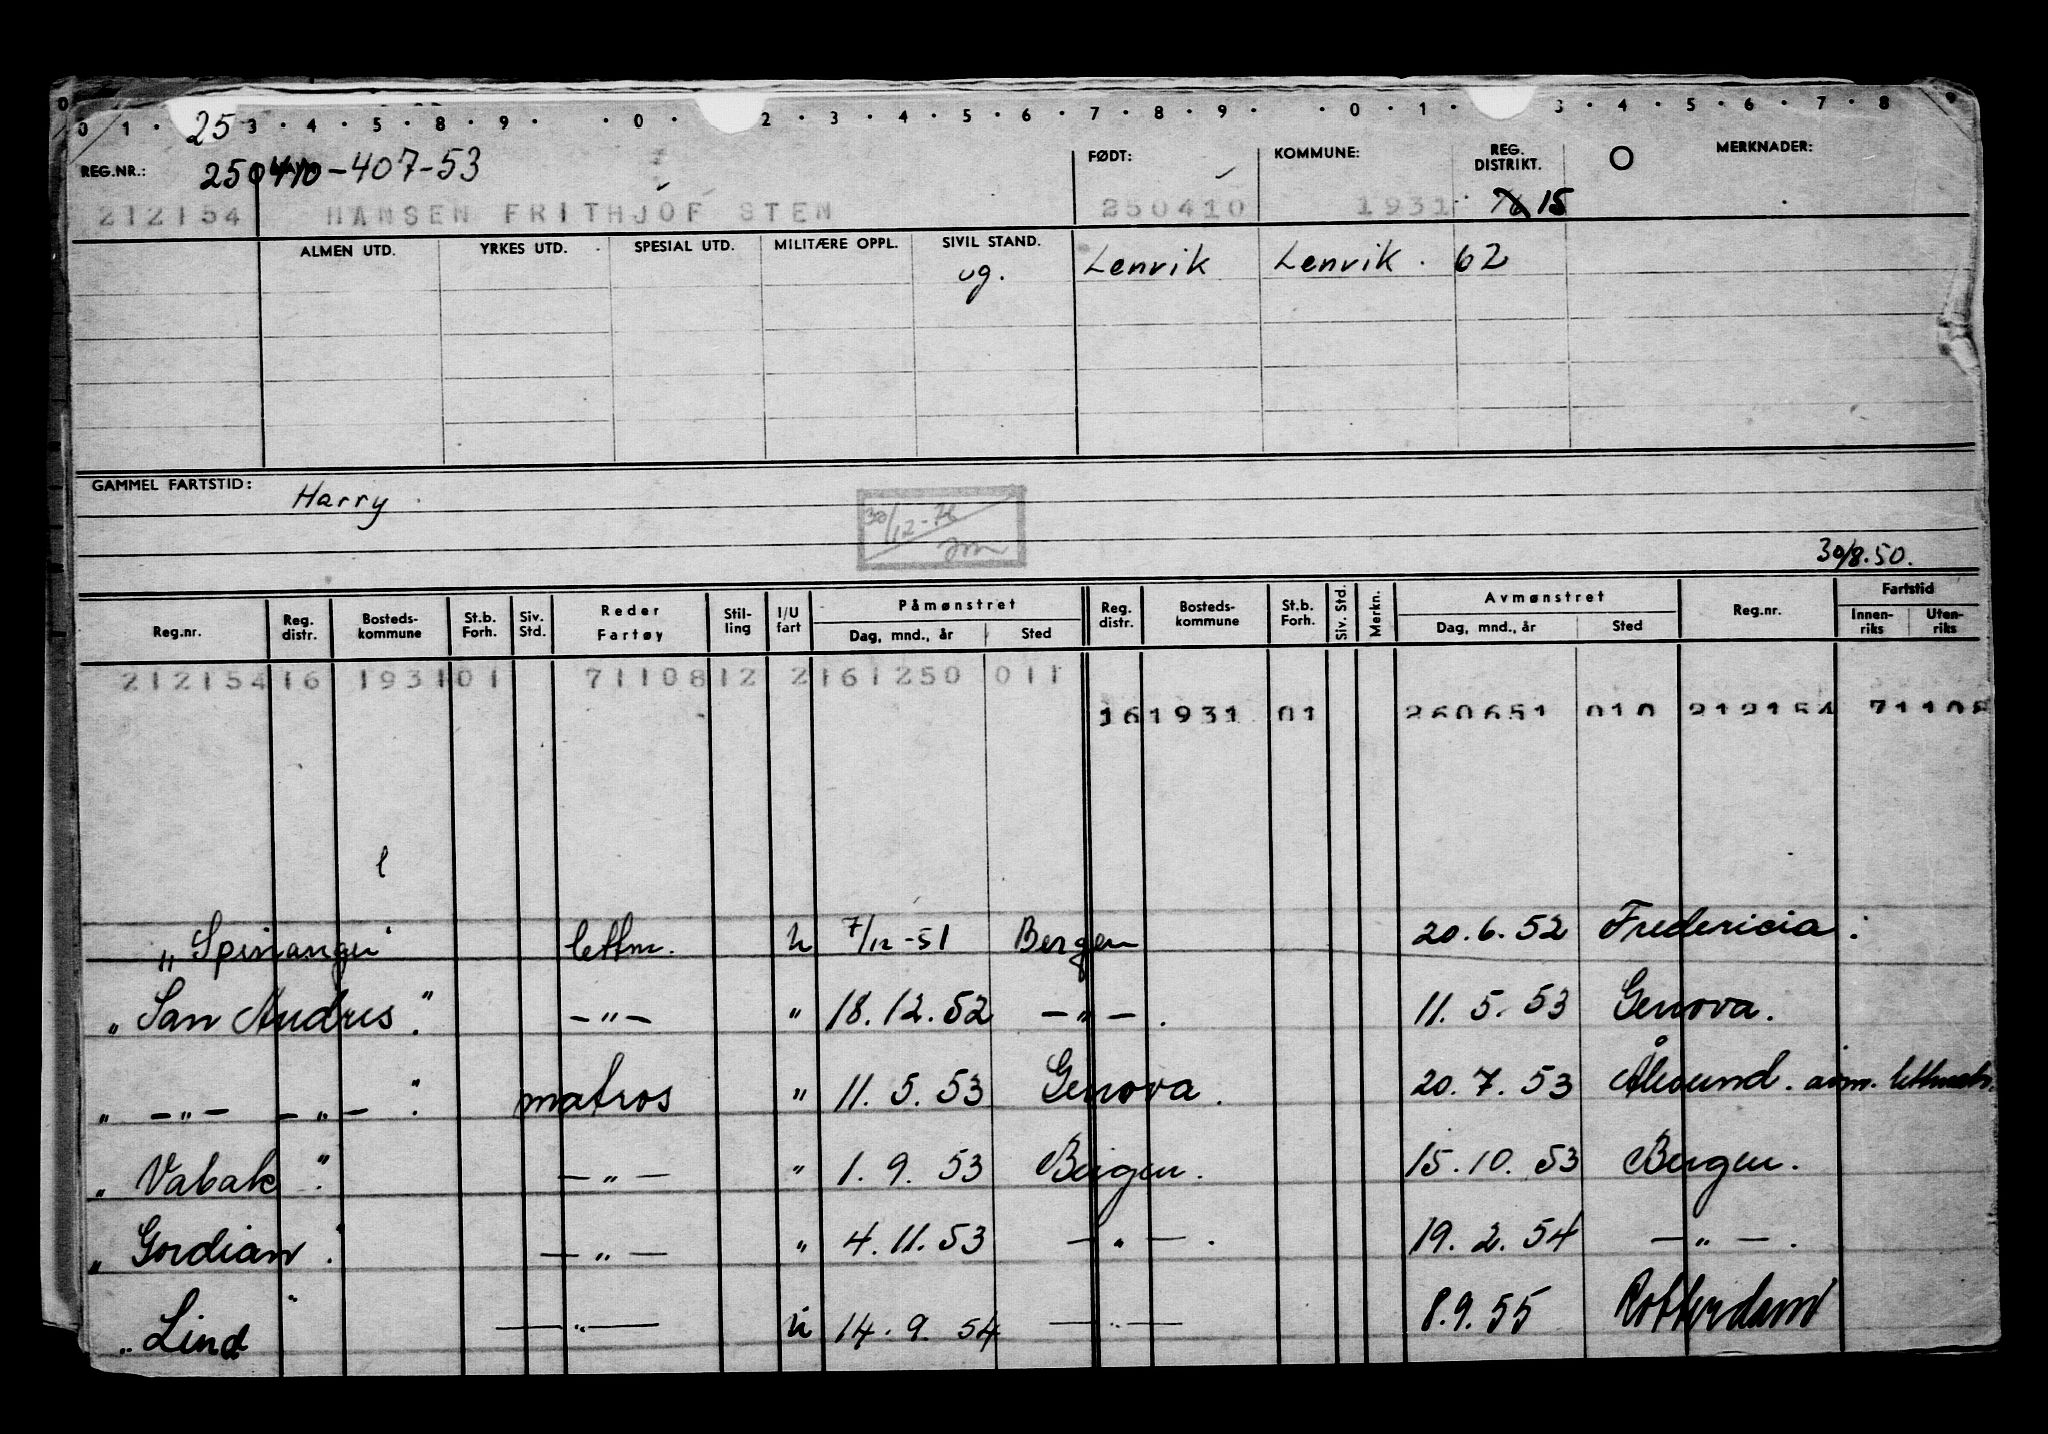 0 1 · 25 3 · 4 · 5 · 8 · 9 · · 0 · 2 · 3 · 4 · 5 · 6 · 7 · 8 · 9 · · 0 · 1 · 3 · 4 · 5 · 6 · 7 · 8 9
REG.NR.: 250410-407-53 FØDT: KOMMUNE: REG. DISTRIKT. O MERKNADER:
212154 HANSEN FRITHJOF STEN 250410 1931 15
ALMEN UTD. YRKES UTD. SPESIAL UTD. MILITÆRE OPPL. SIVIL STAND. Lenvik Lenvik . 62
ug.
GAMMEL FARTSTID: Harry
30/12-76
30/8.50.
Reg.nr. Reg. distr. Bosteds-kommune St.b. Forh. Siv. Std. Reder Fartøy Stil-ling I/U fart Påmønstret Dag, mnd., år Sted Reg. distr. Bosteds-kommune St.b. Forh. Siv. Std. Merkn. Avmønstret Dag, mnd., år Sted Reg.nr. Fartstid Innen-riks Uten-riks
212154 16 1931 01 71108 12 2 161250 011
16 1931 01 260651 010 212154 71108
l
"Spinanger" lettm. u 7/12-51 Bergen 20.6.52 Fredericia.
"San Andres". -"- " 18.12.52 -"-. 11.5.53 Genova.
" -"- -"- ". matros " 11.5.53 Genova. 20.7.53 Ålesund. avm. lettmatr.
"Vabak". -"- " 1.9.53 Bergen. 15.10.53 Bergen.
"Gordian". -"- " 4.11.53 -"-. 19.2.54 -"-.
"Lind" -"- u 14.9.54 -"- 8.9.55 Rotterdam